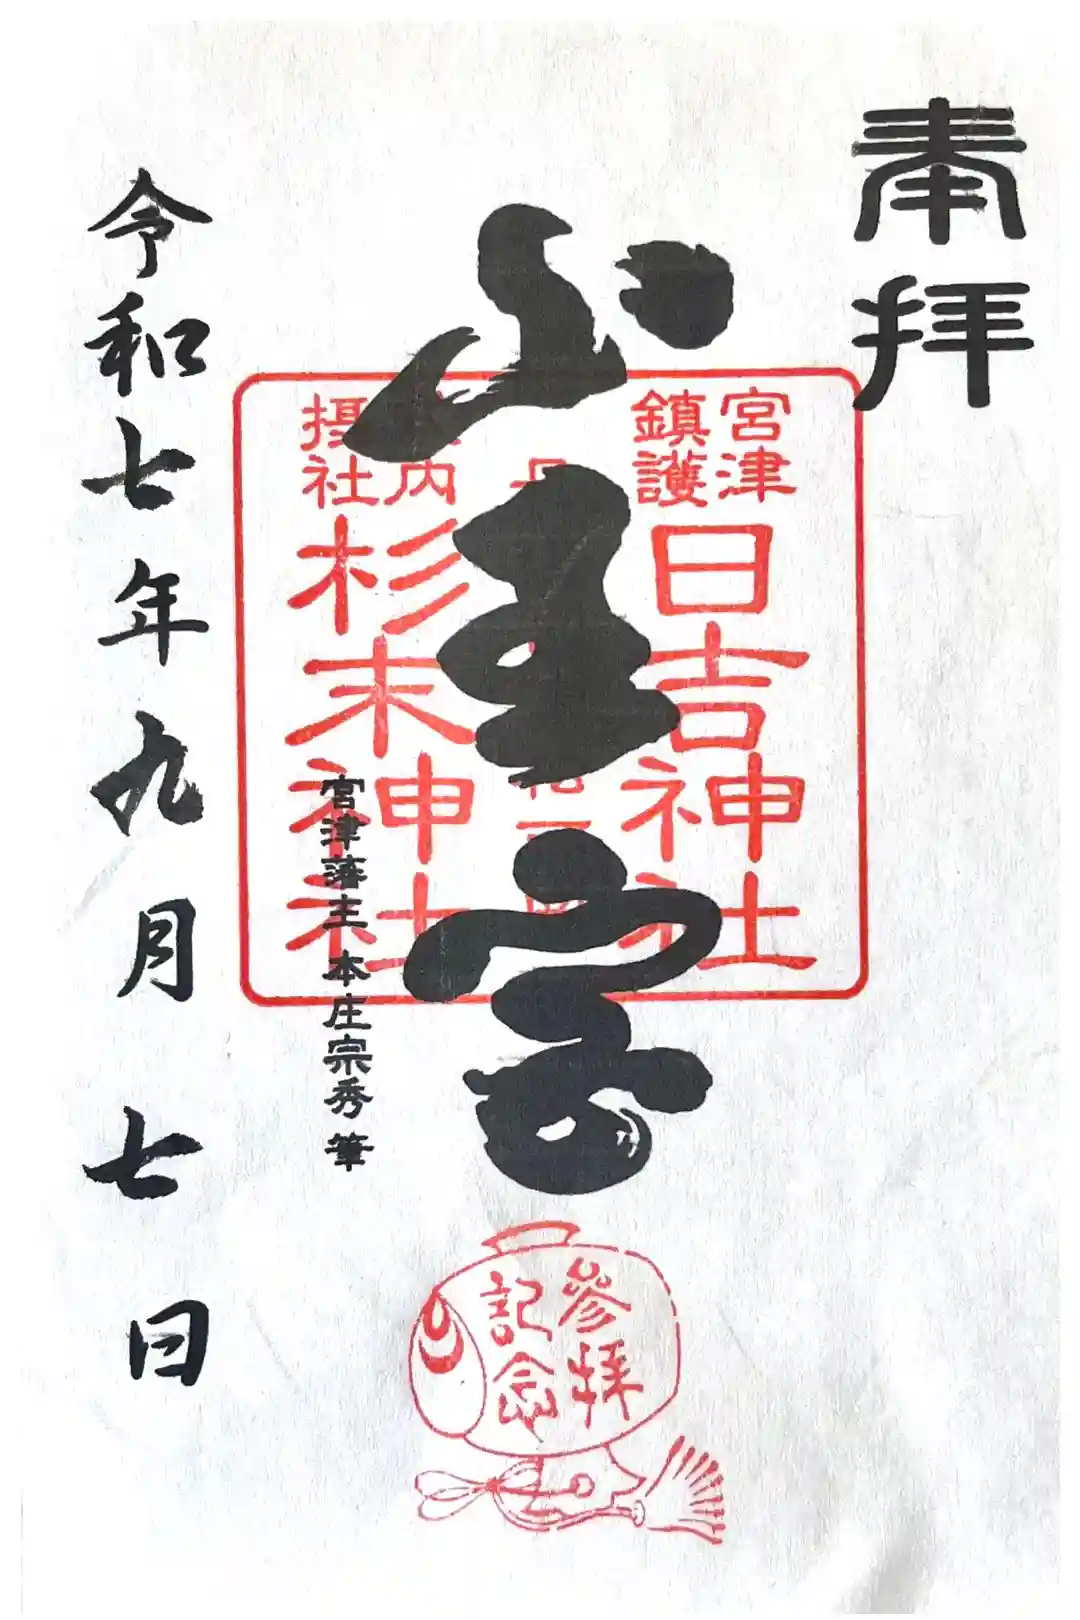 奉拝
宮津
鎮護
日吉神社
山王宮
内
摂社
杉末神社
宮津藩主 本庄宗秀 筆
令和七年九月七日
參拜
記念